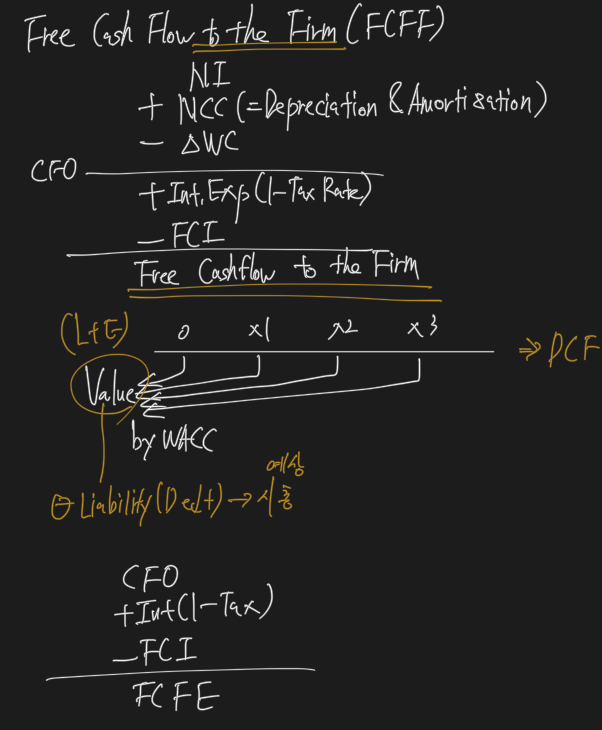 Free Cash Flow to the Firm (FCFF)
NI
+ NCC (=Depreciation & Amortization)
- ΔWC
CFO
+ Int.Exp (1-Tax Rate)
- FCI
Free Cashflow to the Firm
(L+E) 0 x1 x2 x3 ⇒ DCF
Value
by WACC
예상
⊖ Liability (Debt) → 시총
CFO
+Int(1-Tax)
-FCI
FCFE